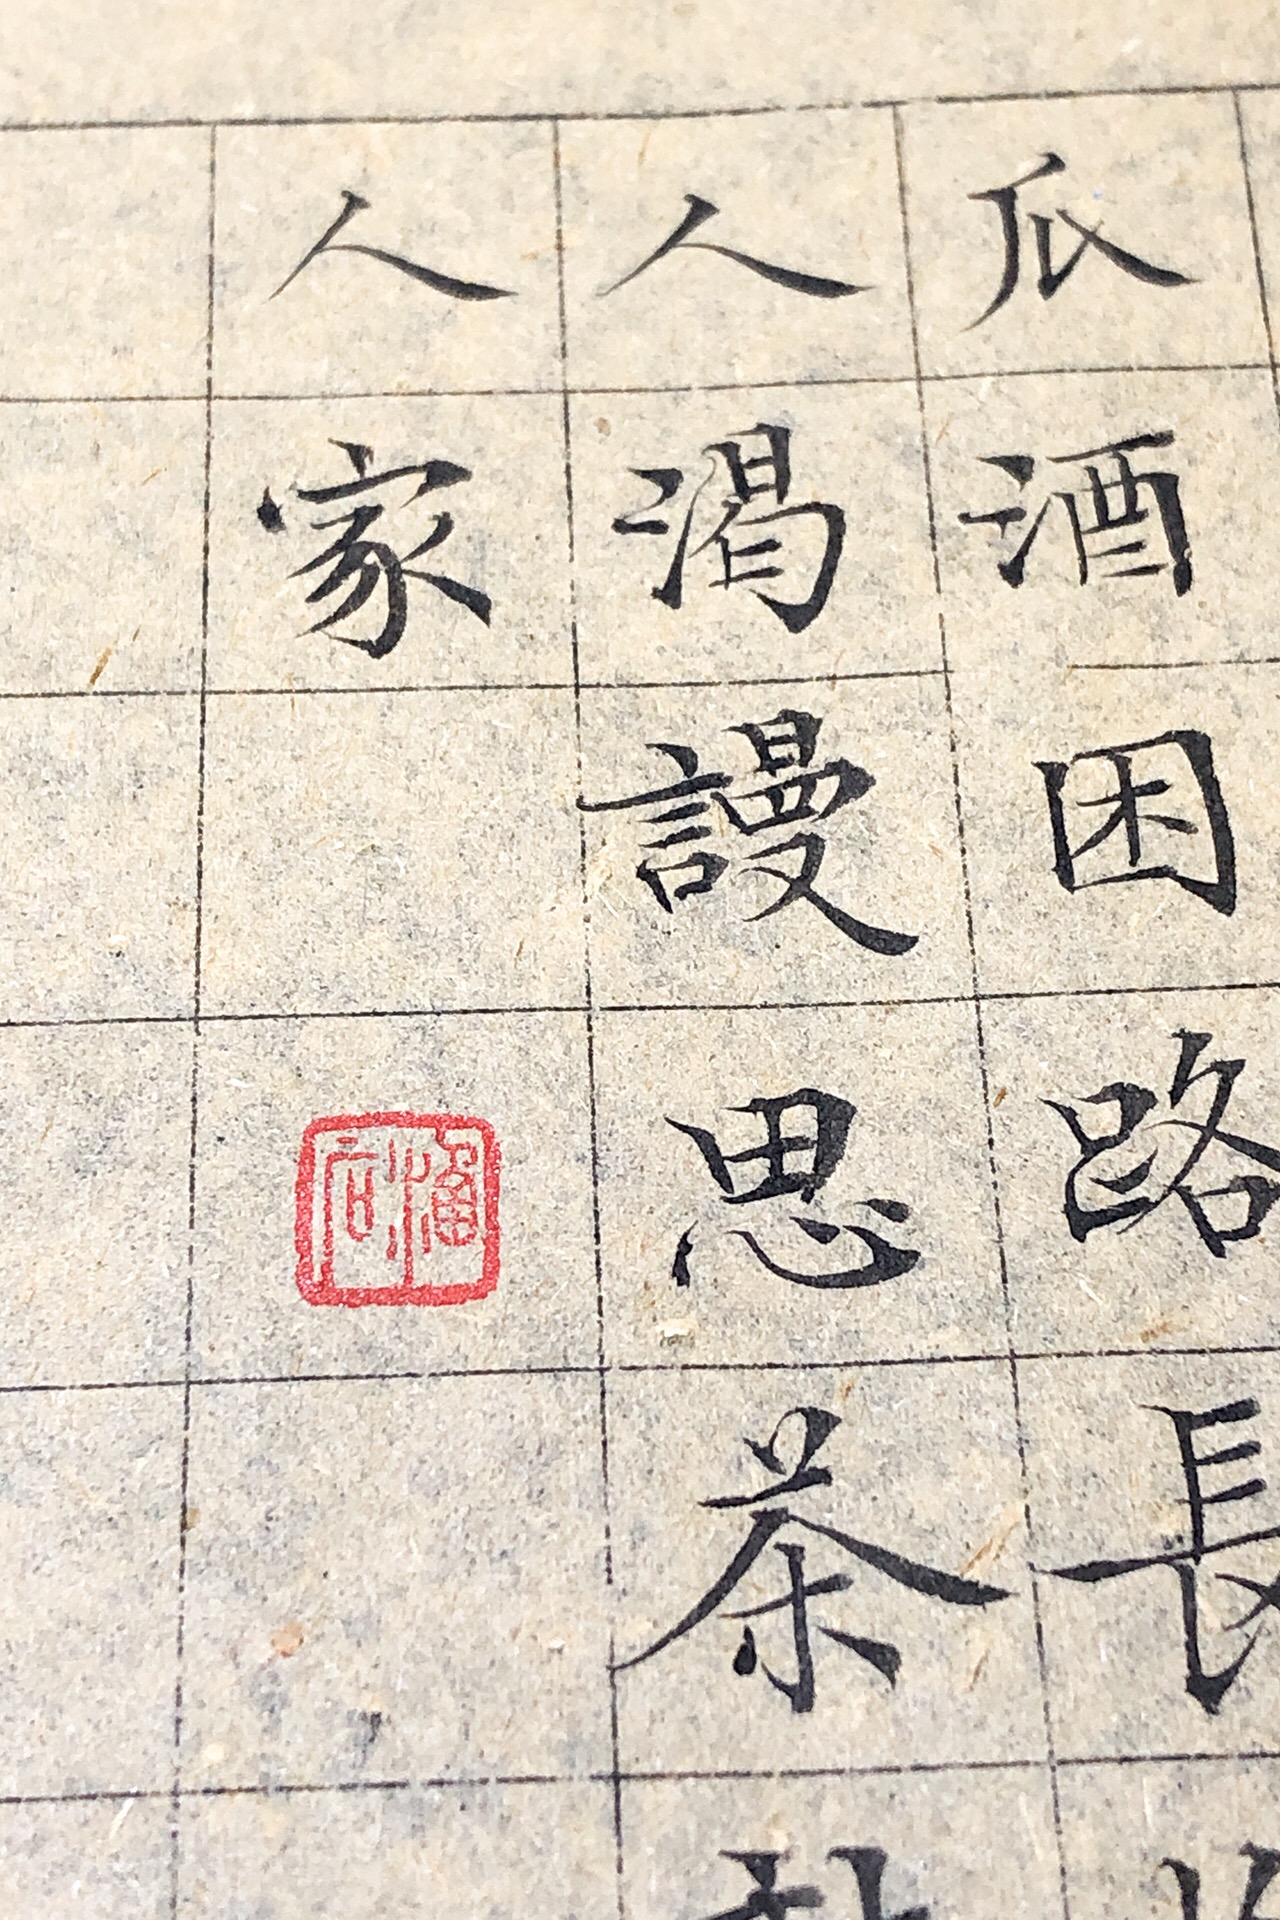 瓜酒困路長
人渴謾思茶
人家